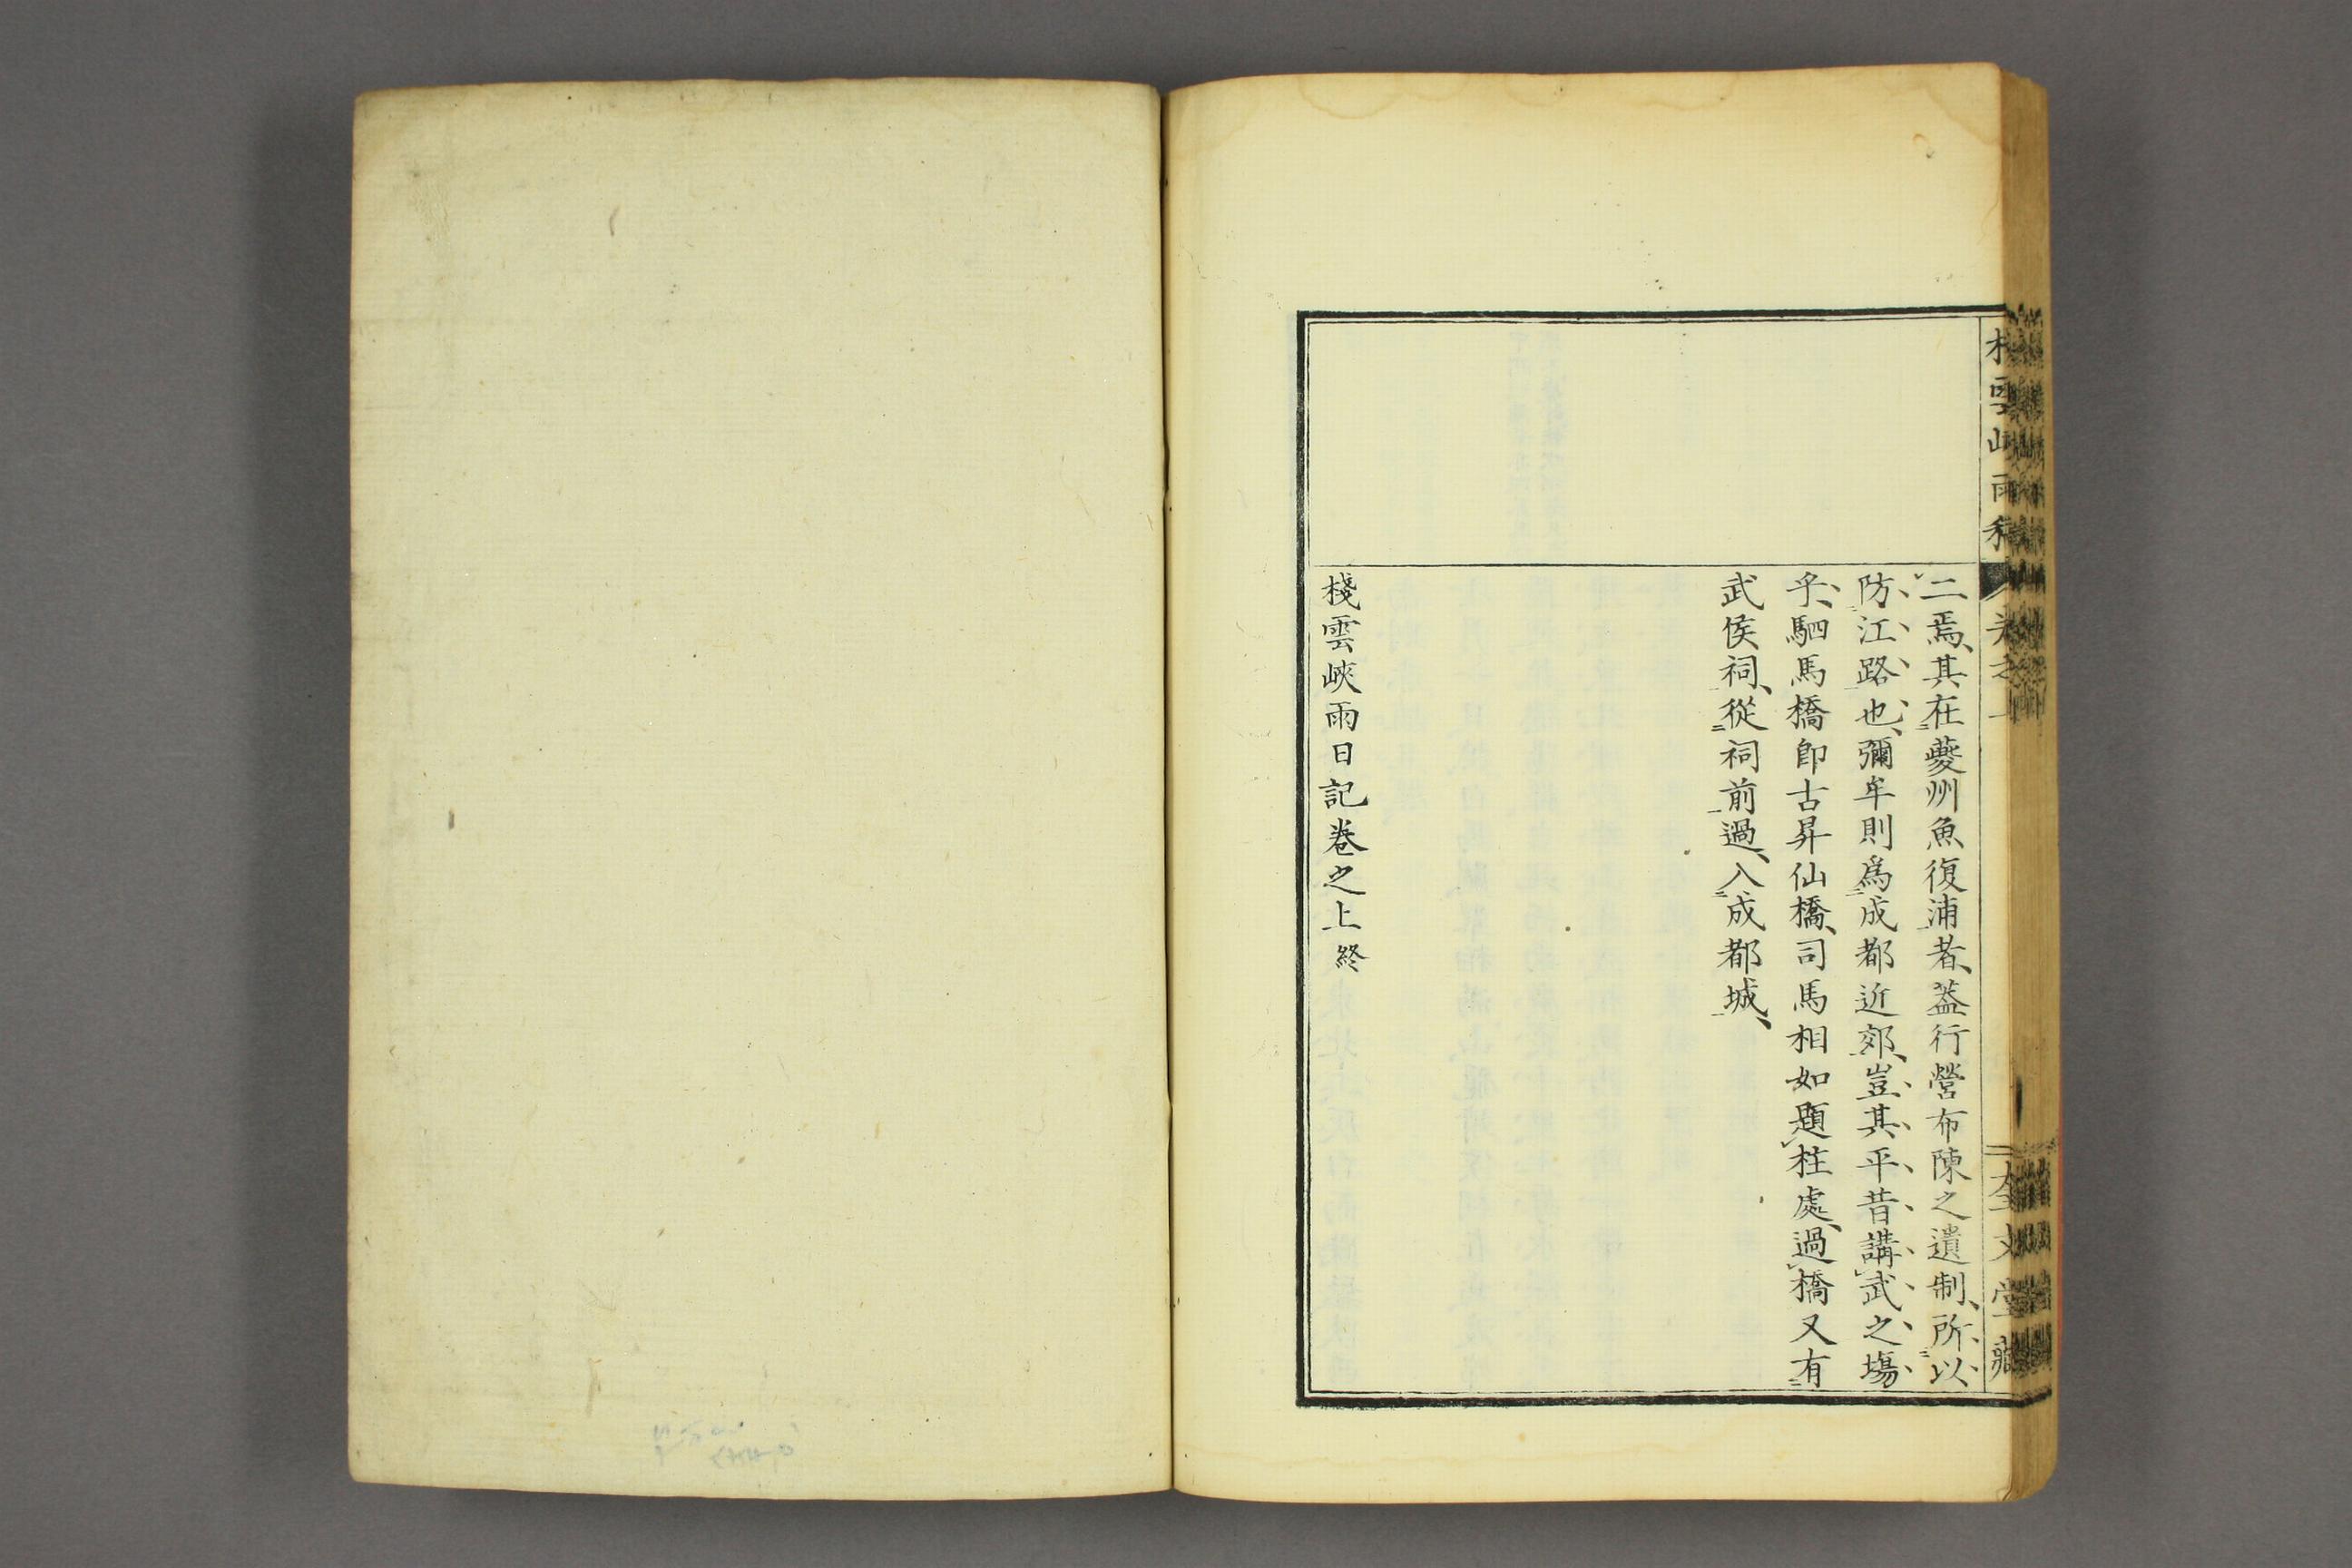 二焉、其在夔州魚復浦者、蓋行營布陳之遺制、所以
防江路也、彌牟則爲成都近郊、豈其平昔講武之塲
乎、駟馬橋卽古昇仙橋、司馬相如題柱處、過橋又有
武侯祠、從祠前過、入成都城、
棧雲峽雨日記卷之上終